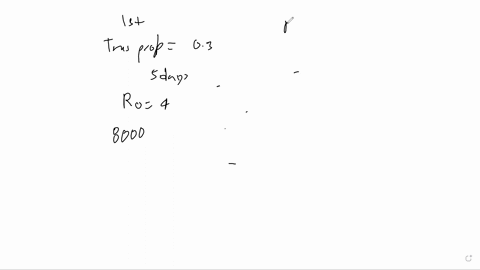 1st
Trns prob = 0.3
5 days
R0 = 4
8000